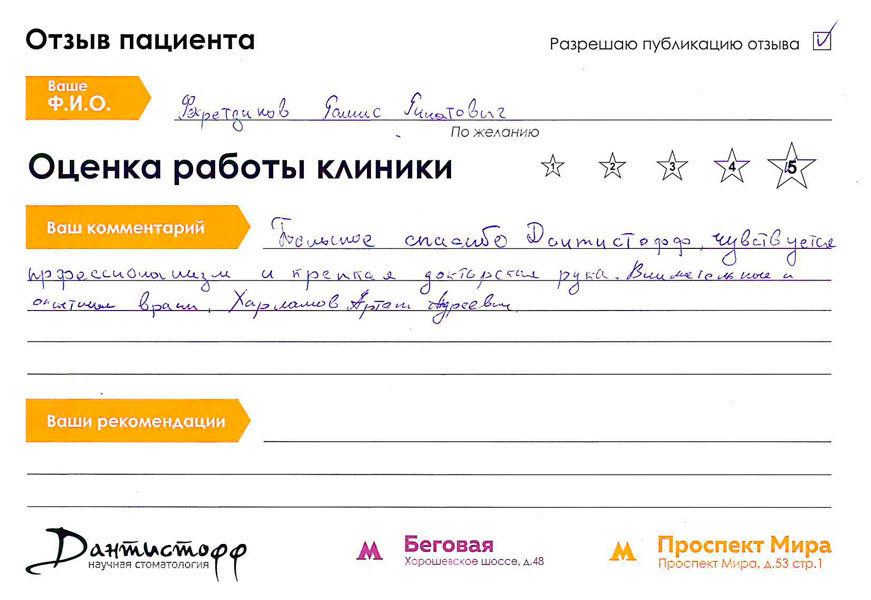 Отзыв пациента
Разрешаю публикацию отзыва
Ваше
Ф.И.О.
Рамис Ринатович
По желанию
Оценка работы клиники
1 2 3 4 5
Ваш комментарий
Большое спасибо Дантистофф, чувствуется
профессионализм и крепкая докторская рука. Внимательные и
врачи, Харламов Артем
Ваши рекомендации
Дантистофф
научная стоматология
Беговая
Хорошевское шоссе, д.48
Проспект Мира
Проспект Мира, д.53 стр.1